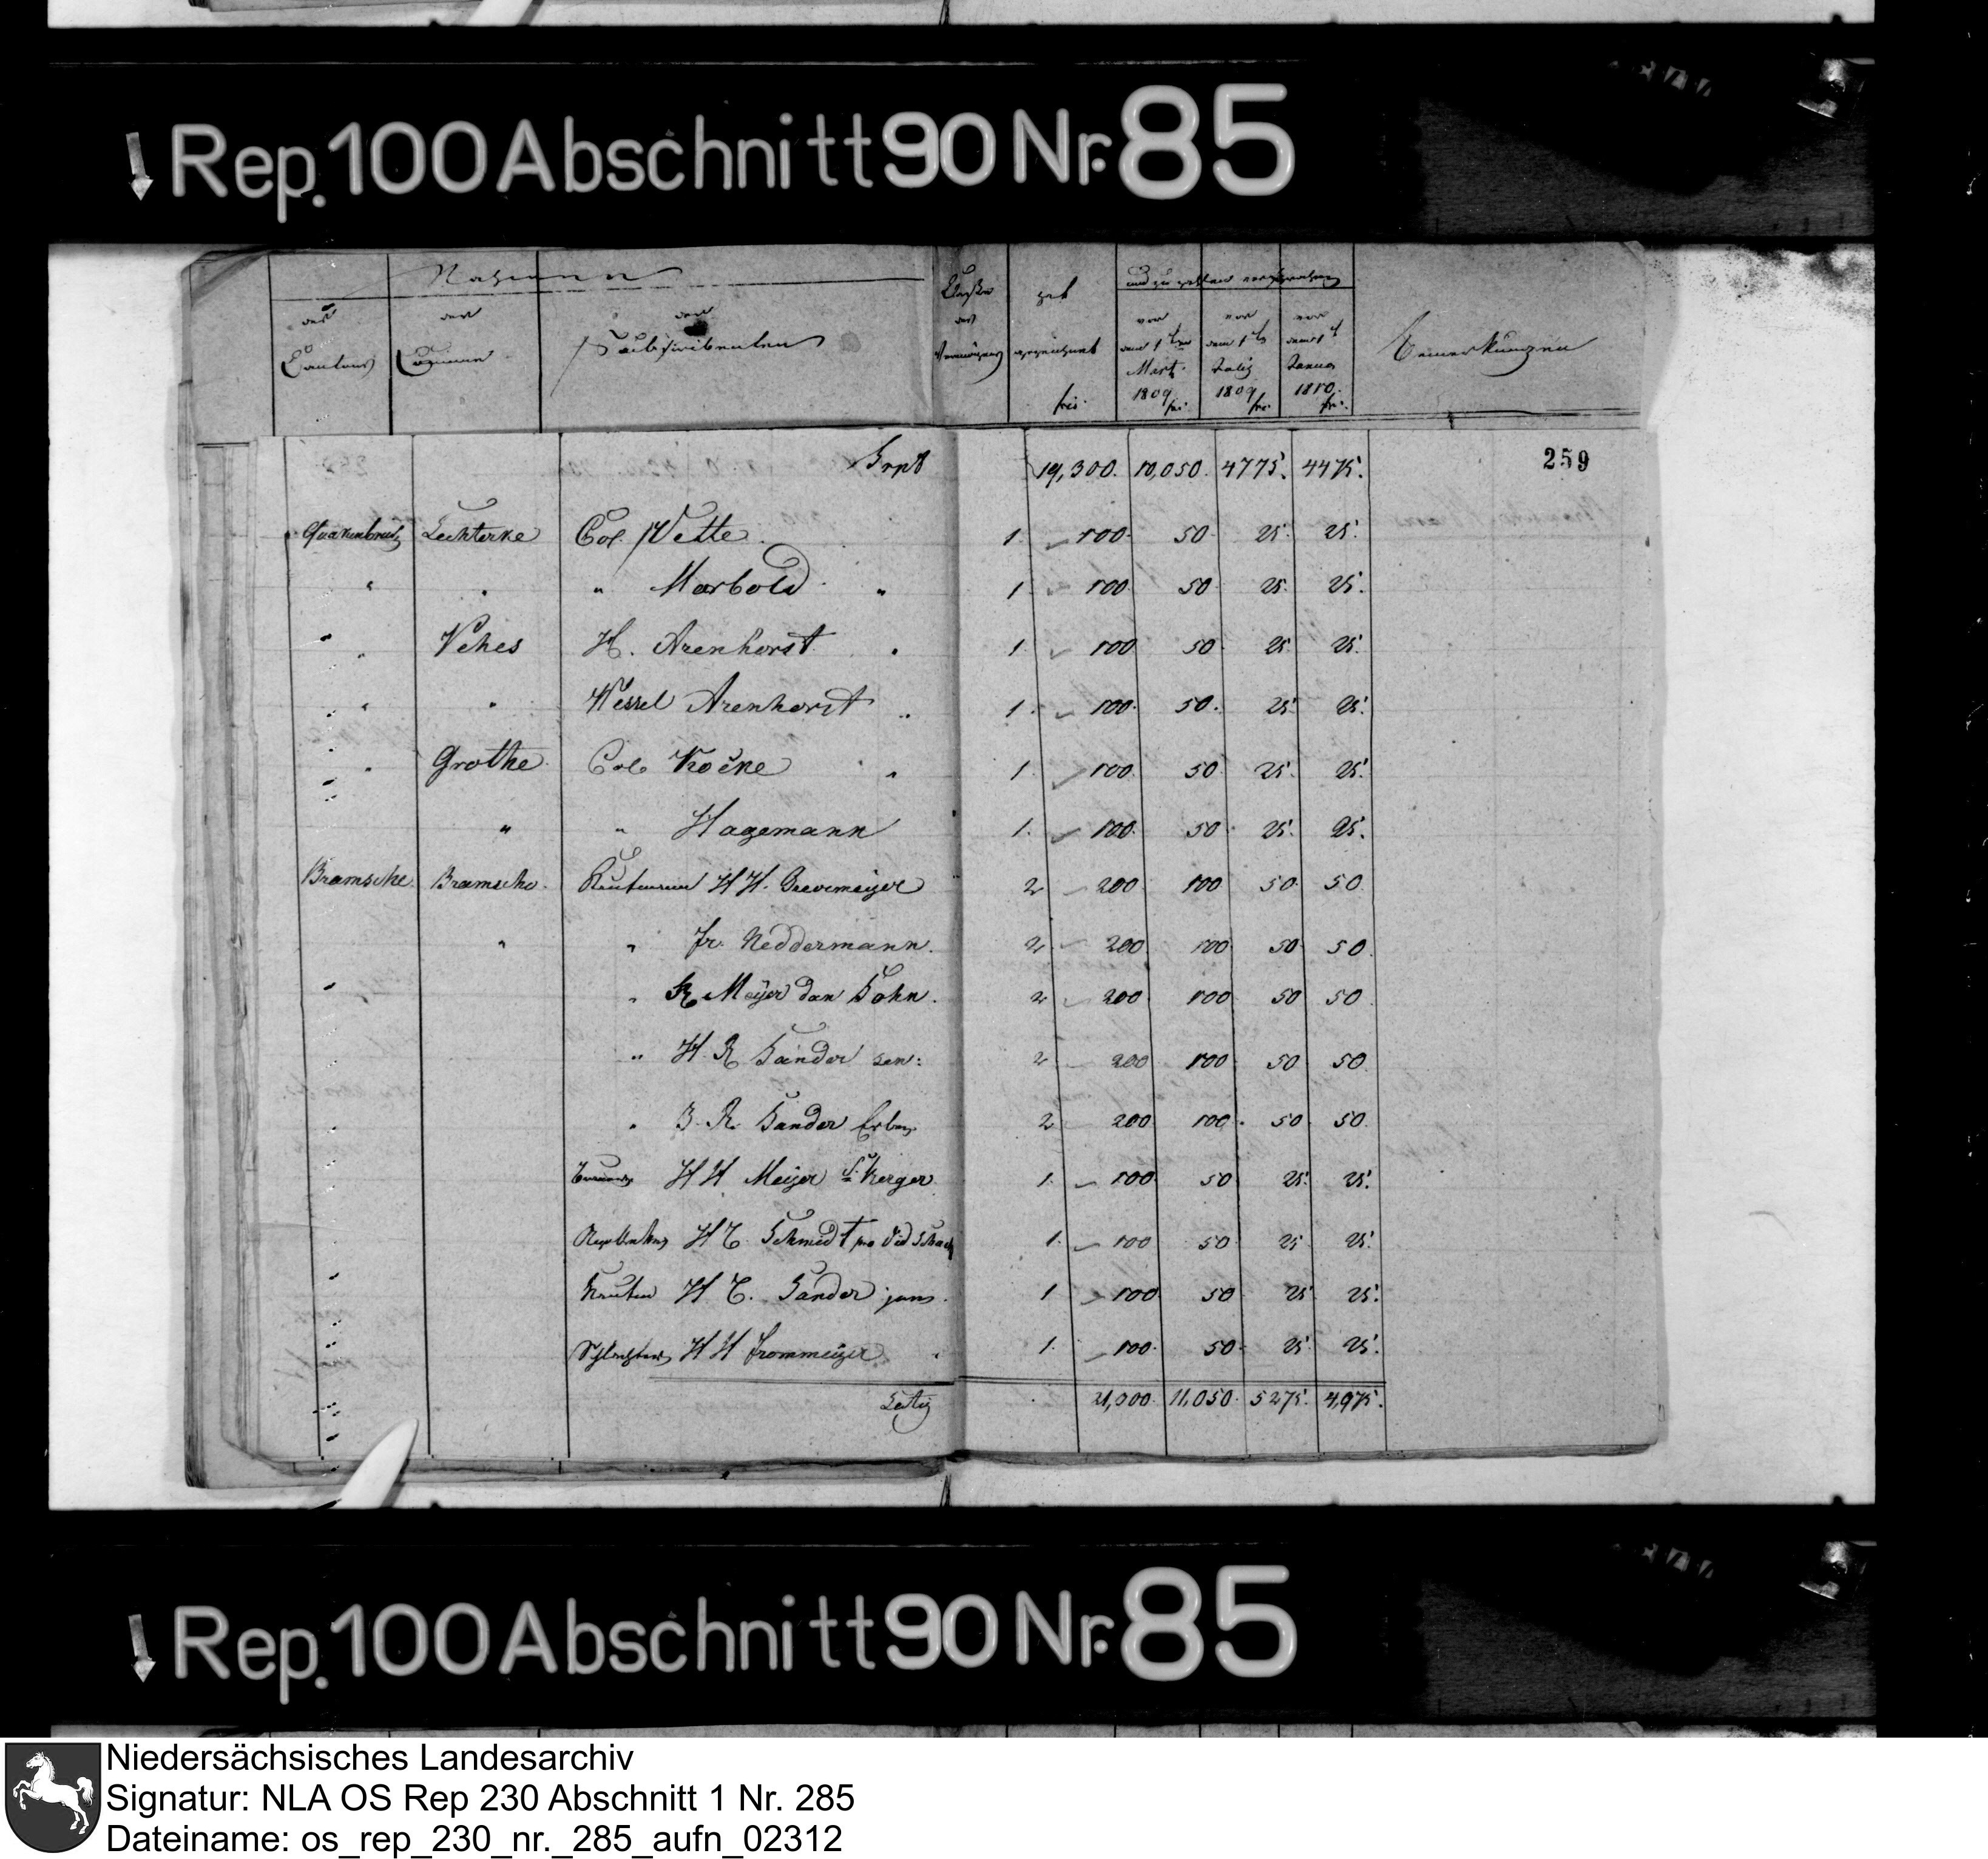 Rep. 100 Abschnitt 90 Nr. 85
Nahmen
des Cantons
der Commune
der Subscribenten
Classe des Vermögens
hat gezeichnet frcs.
und zu zahlen versprochen
vor dem 1ten Märtz 1809 frs.
vor dem 1ten July 1809 frs.
vor dem 1t Januar 1810 frs.
Bemerkungen
259
Trspt 19,300. 10,050. 4775. 4475.
Quakenbrück Lechterke Col. Wette 1 100 50 25 25.
" " " Marbold " 1 100 50 25 25.
" " Vehes H. Arenhorst " 1 100 50 25 25.
" " " Wessel Arenhorst " 1 100 50 25 25.
" " Grothe Col. Kocke " 1 100 50 25 25.
" " Hagemann 1 100 50 25 25.
Bramsche Bramsche Kaufmann H H. 2 200 100 50 50
" " fr. Neddermann 2 200 100 50 50
" R Meÿer den Sohn 2 200 100 50 50
" H. R Sander sen: 2 200 100 50 50
" B. R. Sander Erben 2 200 100 50 50
H H Meÿer 1 100 50 25 25.
H C. Schmidt 1 100 50 25 25.
Kaufm H C. Sander jun. 1 100 50 25 25.
Schlachter H H Frommeÿer " 1 100 50 25 25.
Latus 21,000 11,050 5275. 4,975.
Rep. 100 Abschnitt 90 Nr. 85
Niedersächsisches Landesarchiv
Signatur: NLA OS Rep 230 Abschnitt 1 Nr. 285
Dateiname: os_rep_230_nr._285_aufn_02312